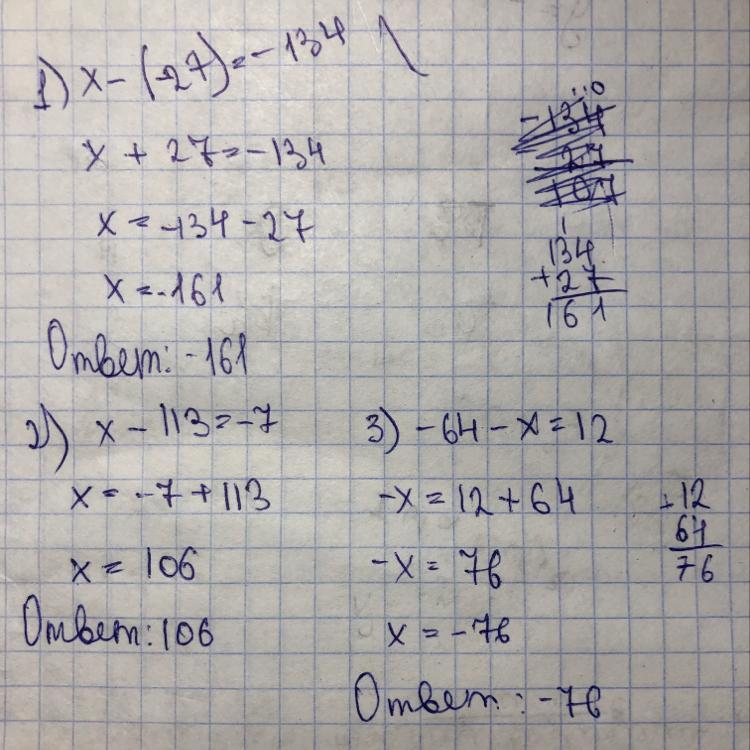 1) x - (-27) = -134
x + 27 = -134
x = -134 - 27
x = -161
Ответ: -161
134
+27
161
2) x - 113 = -7
x = -7 + 113
x = 106
Ответ: 106
3) -64 - x = 12
-x = 12 + 64
-x = 76
x = -76
Ответ: -76
+12
64
76